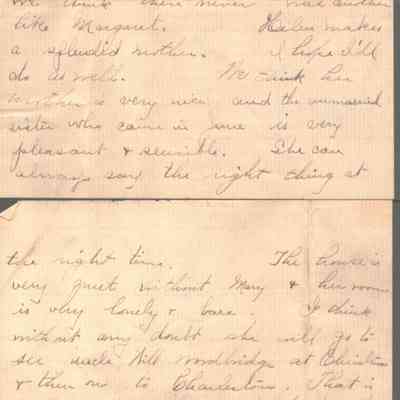 We think there never was another
like Margaret. Helen makes
a splendid mother. I hope I'll
do as well. We think her
mother is very nice, and the unmarried
sister who came in June is very
pleasant & sensible. She can
always say the right thing at
the right time. The house is
very quiet without Mary & her room
is very lonely & bare. I think
without any doubt she will go to
see Uncle Will Woodbridge at Christmas
& then on to Charlestown. That is